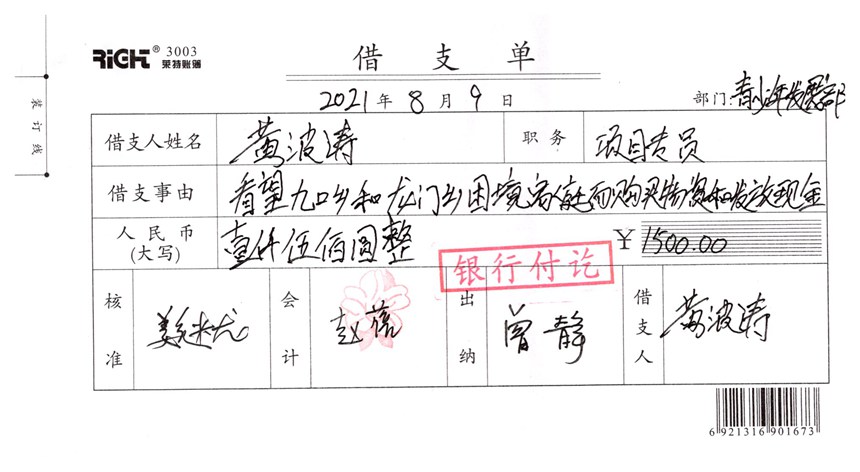 RiGHT® 3003
莱特账簿
借支单
2021年8月9日
部门:青少年发展部
装订线
借支人姓名 黄波涛 职务 项目专员
借支事由 看望九口乡和龙门乡困境家庭而购买物资和发放现金
人民币(大写) 壹仟伍佰圆整 ¥1500.00
银行付讫
核准 会计 赵蓓 出纳 曾静 借支人 黄波涛
6 921316 901673